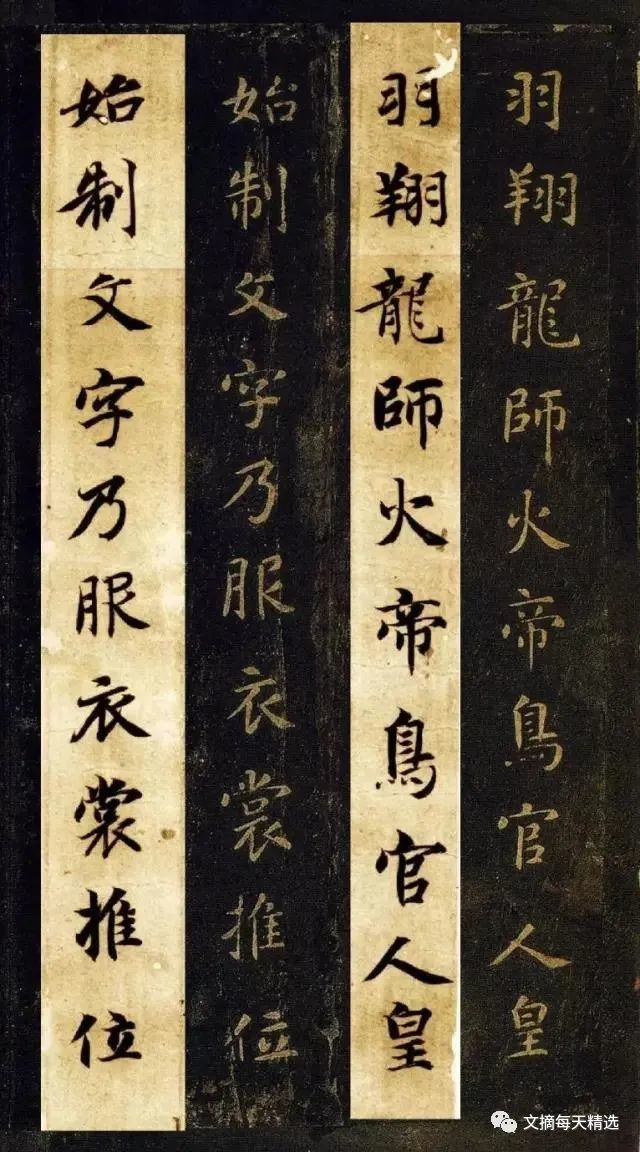 羽翔龍師火帝鳥官人皇
羽翔龍師火帝鳥官人皇
始制文字乃服衣裳推位
始制文字乃服衣裳推位
文摘每天精选